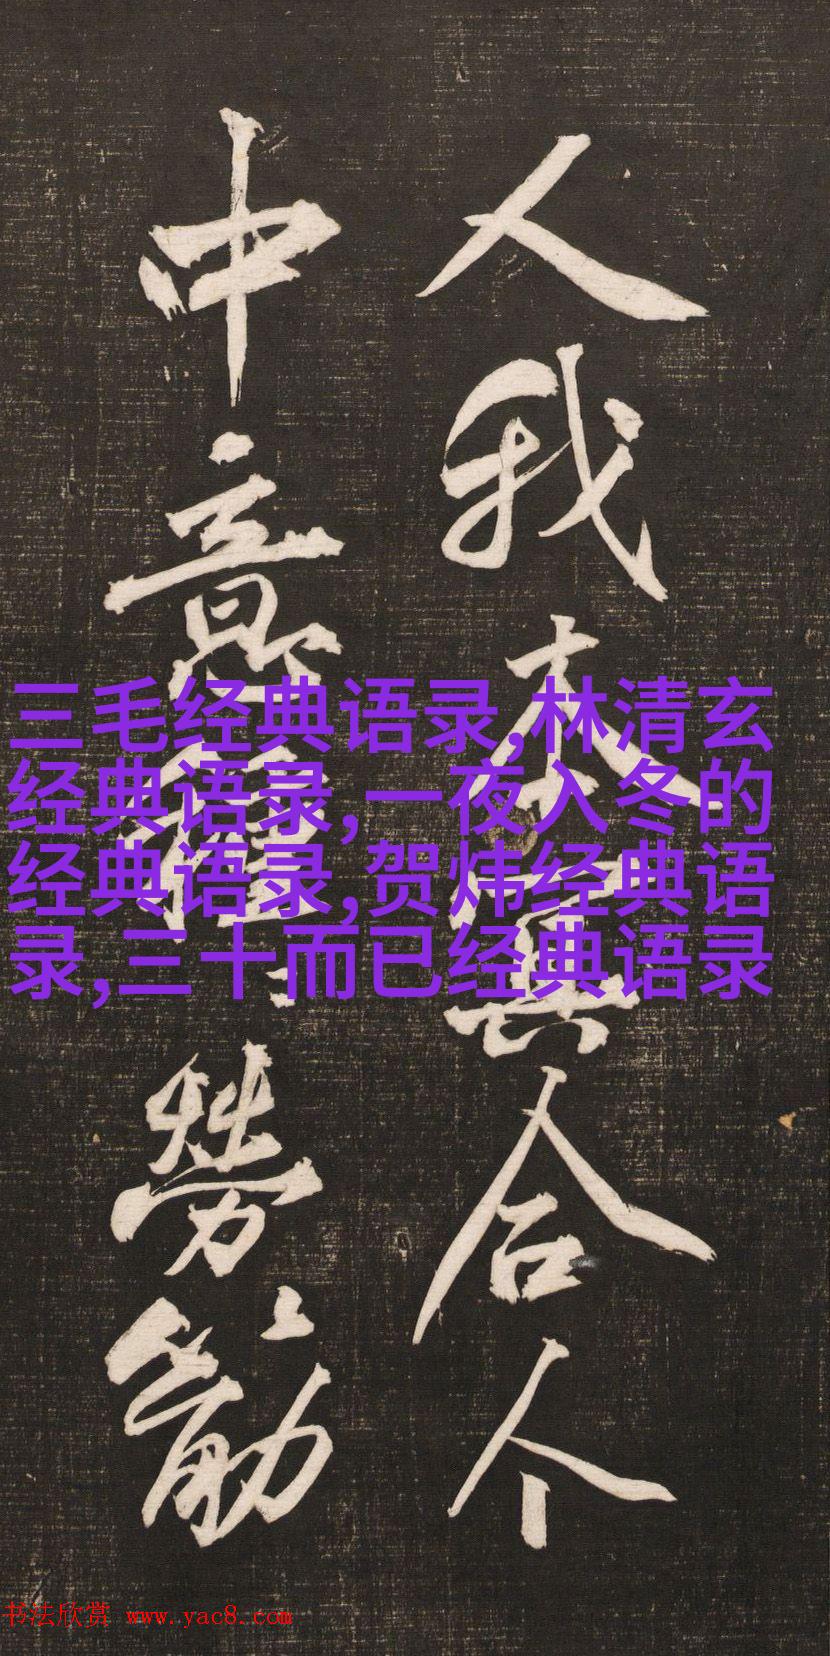 人我本冥合个
中意劳筋
三毛经典语录,林清玄
经典语录,一夜入冬的
经典语录,贺炜经典语
录,三十而已经典语录
书法欣赏 www.yac8.com